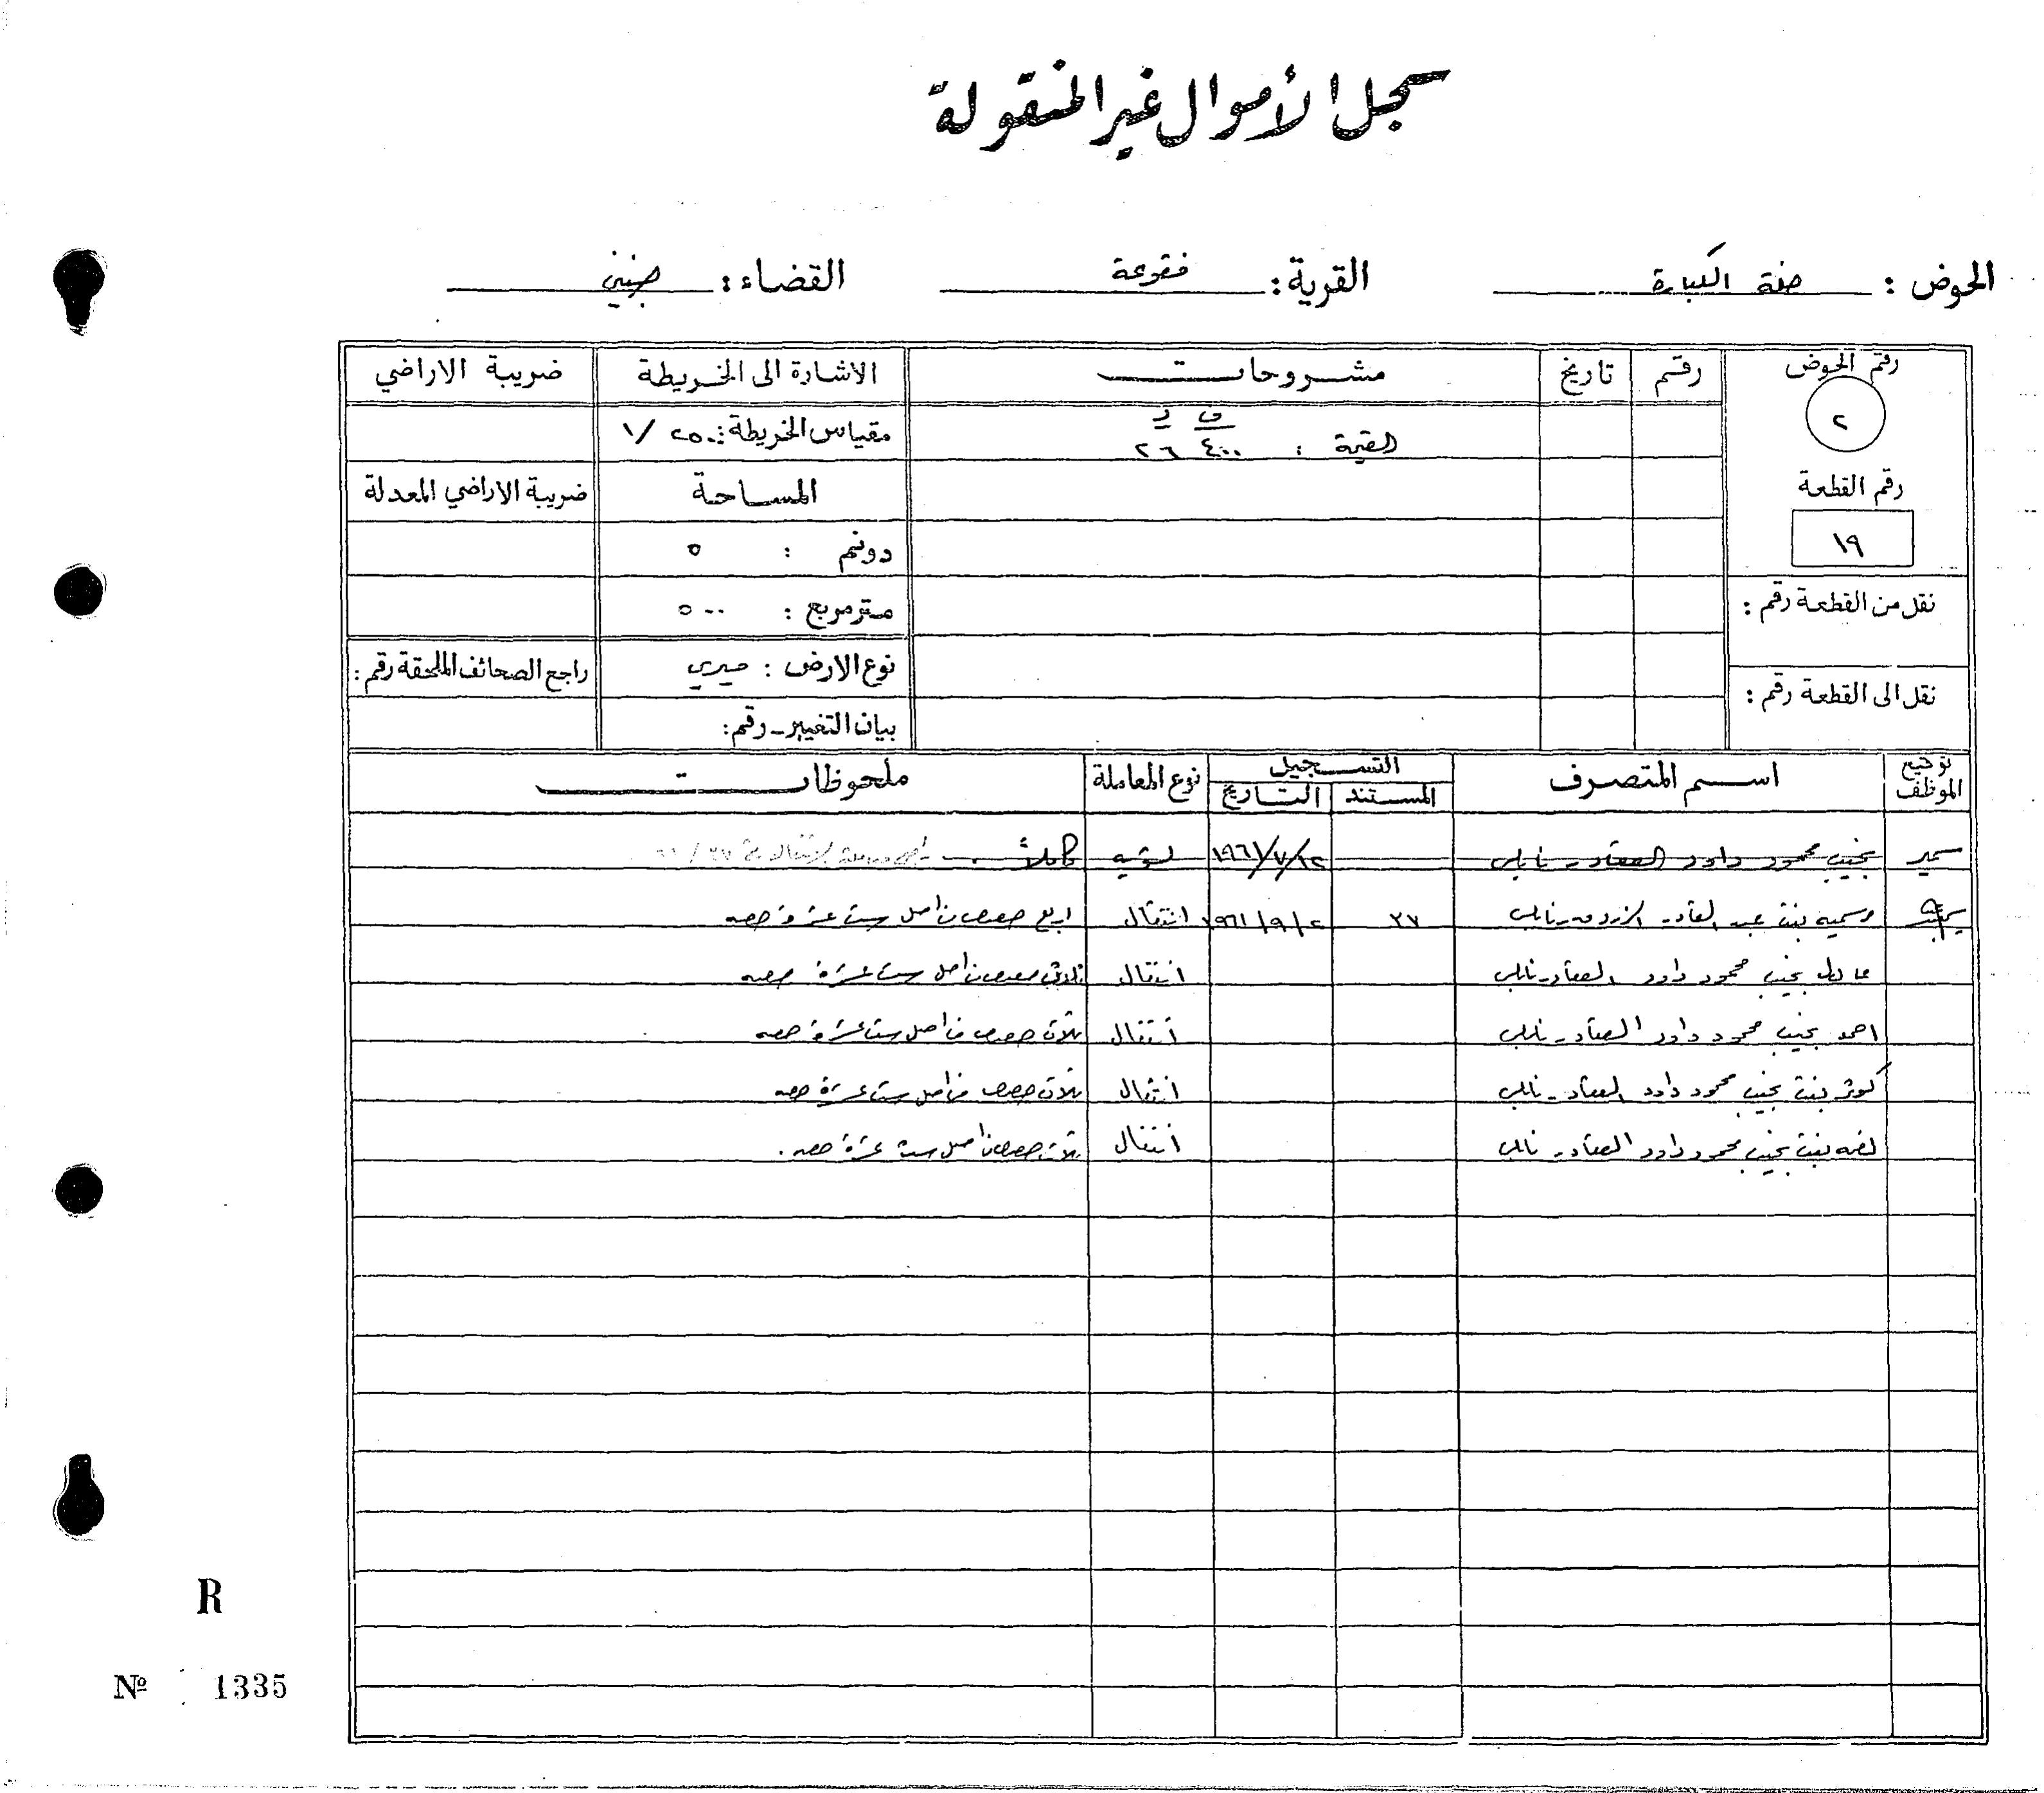 سجل الأموال غير المنقولة
الحوض : الكبارة القرية : فقوعة القضاء : جنين
رقم الحوض رقم تاريخ مشروحات الاشارة الى الخريطة ضريبة الاراضي
٢
ف د
القيمة : ٤٠٠ ٢٦
مقياس الخريطة : ٢٥٠٠ /١
رقم القطعة
المساحة ضريبة الاراضي المعدلة
١٩
دونم : ٥
متر مربع : ٥٠٠
نقل من القطعة رقم :
نوع الارض : ميري راجع الصحائف الملحقة رقم :
نقل الى القطعة رقم :
بيان التغيير - رقم :
توقيع الموظف اسم المتصرف التسجيل نوع المعاملة ملحوظات
المستند التاريخ
سمير نجيب محمود داود العقاد - نابلس ١٩٦١/٧/١٢ تسوية كاملاً
وسميه بنت عبد القادر نابلس ٢٧ ١٩٦١/٩/٢ انتقال اربع حصص من اصل ست عشرة حصه
عادل نجيب محمود داود العقاد - نابلس انتقال ثلاث حصص من اصل ست عشرة حصه
احمد نجيب محمود داود العقاد - نابلس انتقال ثلاث حصص من اصل ست عشرة حصه
كوثر بنت نجيب محمود داود العقاد - نابلس انتقال ثلاث حصص من اصل ست عشرة حصه
بنت نجيب محمود داود العقاد - نابلس انتقال ثلاث حصص من اصل ست عشرة حصه .
R
Nº 1335